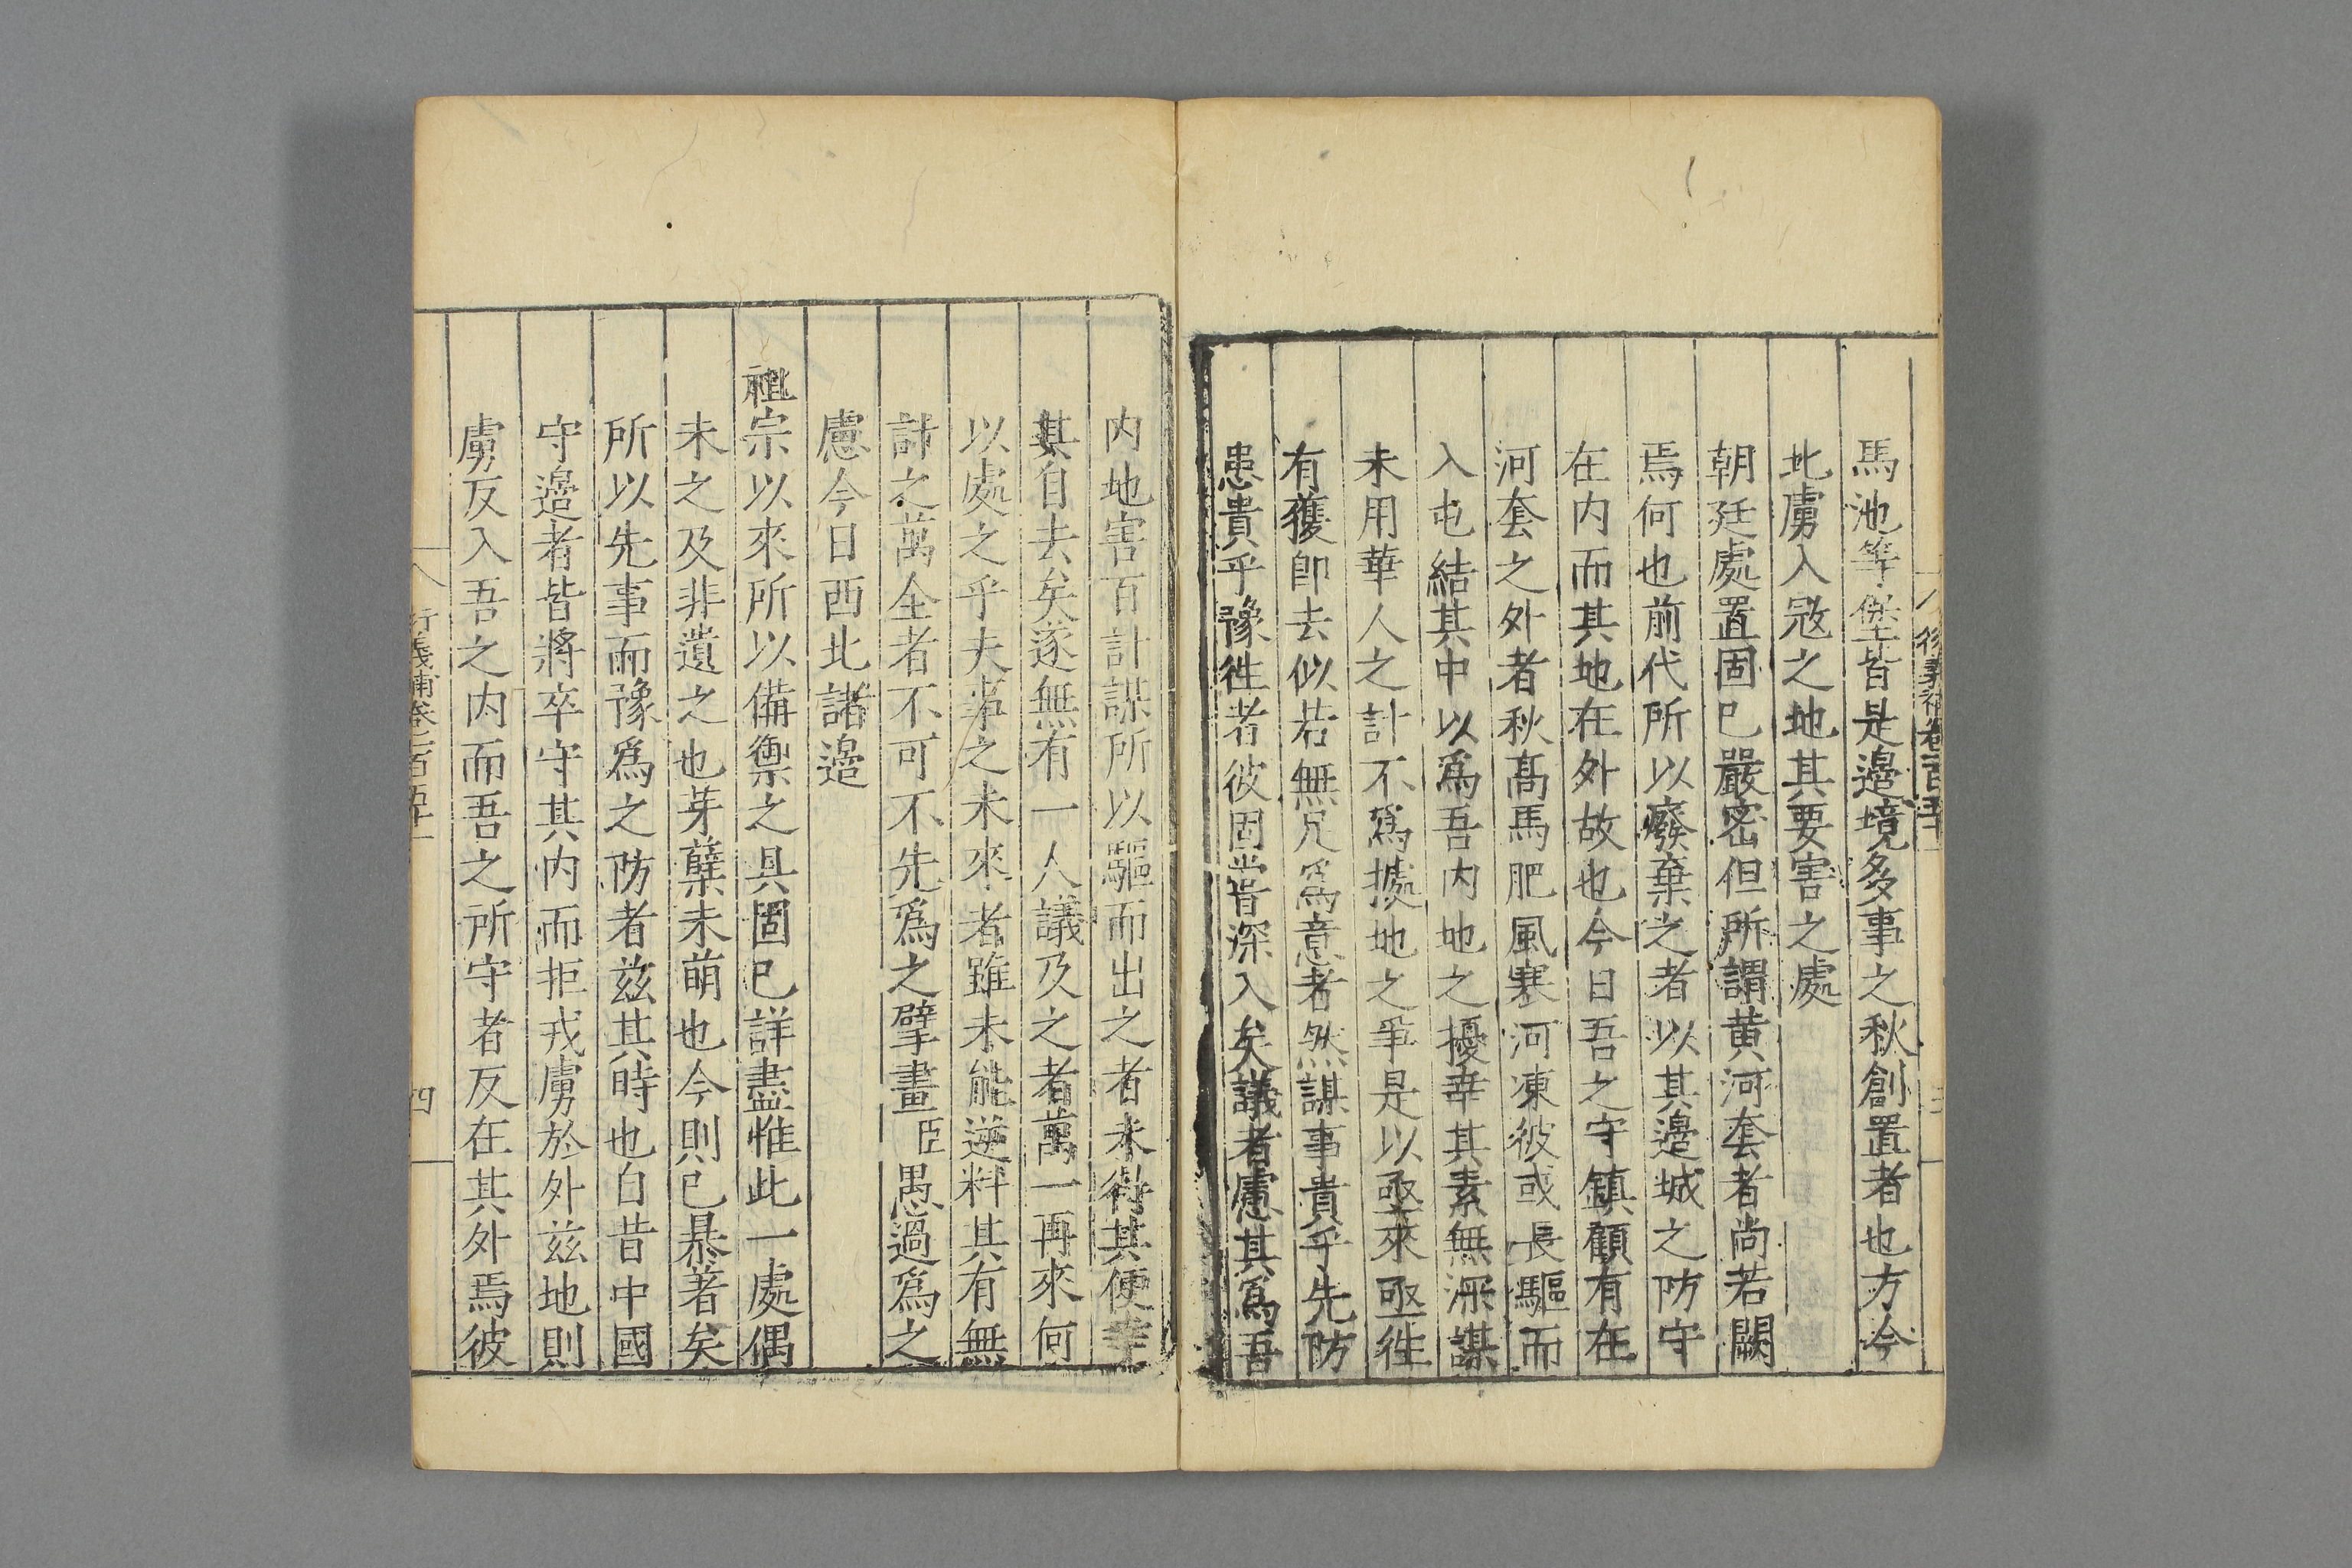 馬池等堡皆是邉境多事之秋創置者也方今
北虜入宼之地其要害之處
朝廷處置固已嚴密但所謂黄河套者尚若闕
焉何也前代所以癈棄之者以其邉城之防守
在内而其地在外故也今日吾之守鎮顧有在
河套之外者秋髙馬肥風寒河凍彼或長驅而
入屯結其中以為吾内地之擾幸其素無深謀
未用華人之計不為㨿地之爭是以亟來亟徃
有獲即去似若無足為意者然謀事貴乎先防
患貴乎豫徃者彼固嘗深入矣議者慮其為吾
内地害百計謀所以驅而出之者未得其便幸
其自去矣遂無有一人議及之者萬一再來何
以處之乎夫事之未來者雖未能逆料其有無
計之萬全者不可不先為之擘畫臣愚過為之
慮今日西北諸邉
祖宗以來所以備禦之具固已詳盡惟此一處偶
未之及非遺之也芽孽未萌也今則已暴著矣
所以先事而豫為之防者兹其時也自昔中國
守邉者皆將卒守其内而拒戎虜於外兹地則
虜反入吾之内而吾之所守者反在其外焉彼
衍義補卷一百五十一
四